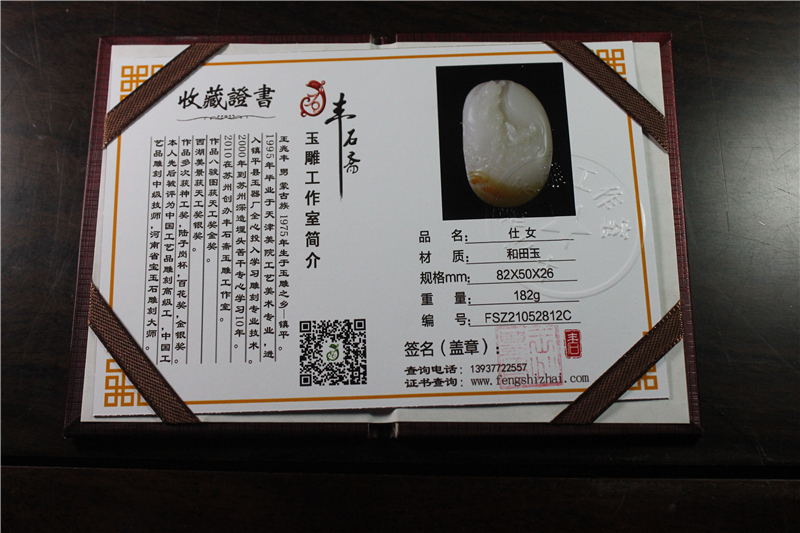 收藏證書
丰石斋
玉雕工作室简介
王兆丰 男 蒙古族 1975年生于玉雕之乡—镇平。
1995年毕业于天津美院工艺美术专业，进
入镇平县玉器厂全心投入学习雕刻专业技术。
2000年到苏州深造埋头苦干专心学习10年。
2010在苏州创办丰石斋玉雕工作室。
作品八骏图获天工奖金奖。
西湖美景获天工奖银奖。
作品多次获神工奖，陆子岗杯，百花奖，金银奖。
本人先后被评为中国工艺品雕刻高级工，中国工
艺品雕刻中级技师，河南省宝玉石雕刻大师。
品 名: 仕女
材 质: 和田玉
规格mm: 82X50X26
重 量: 182g
编 号: FSZ21052812C
签名（盖章）:
查询电话: 13937722557
证书查询: www.fengshizhai.com